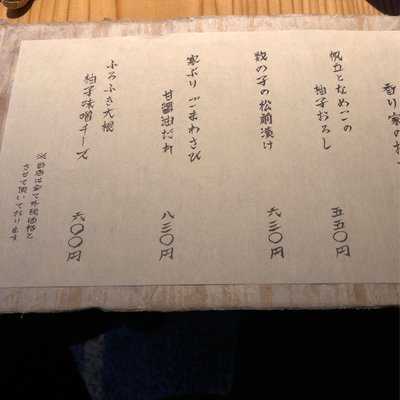 帆立となめこの
柚子おろし
五五〇円
数の子の松前漬け
六三〇円
寒ぶり ごまわさび
甘醤油だれ
八三〇円
ふろふき大根
柚子味噌チーズ
六〇〇円
※価格は全て本体価格と
させて頂いております